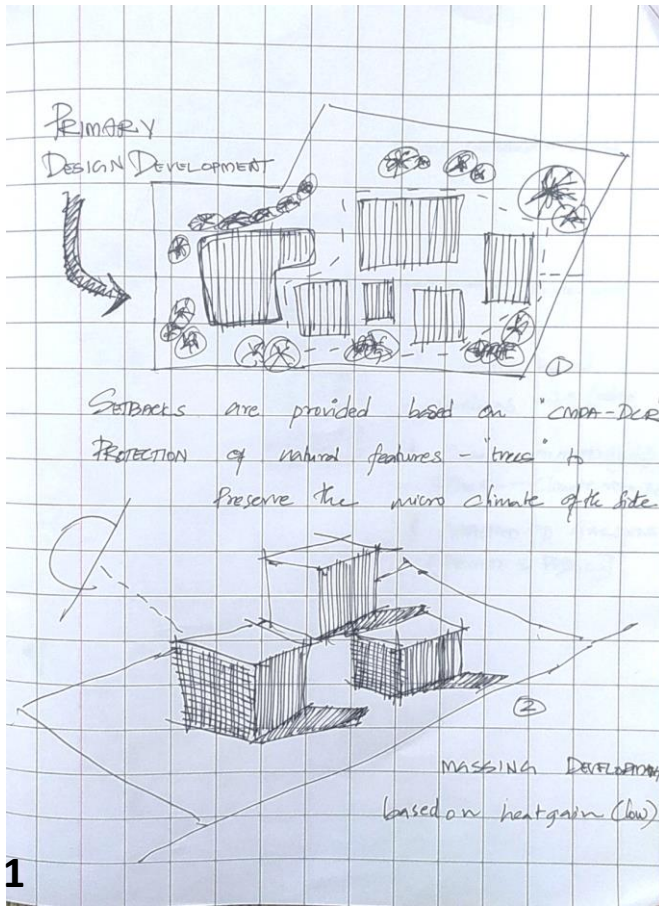 PRIMARY
DESIGN DEVELOPMENT
1
SETBACKS are provided based on "CMDA-DCR
PROTECTION of natural features - "trees" to
Preserve the micro climate of the site
2
MASSING DEVELOPMEN
based on heat gain (low)
1